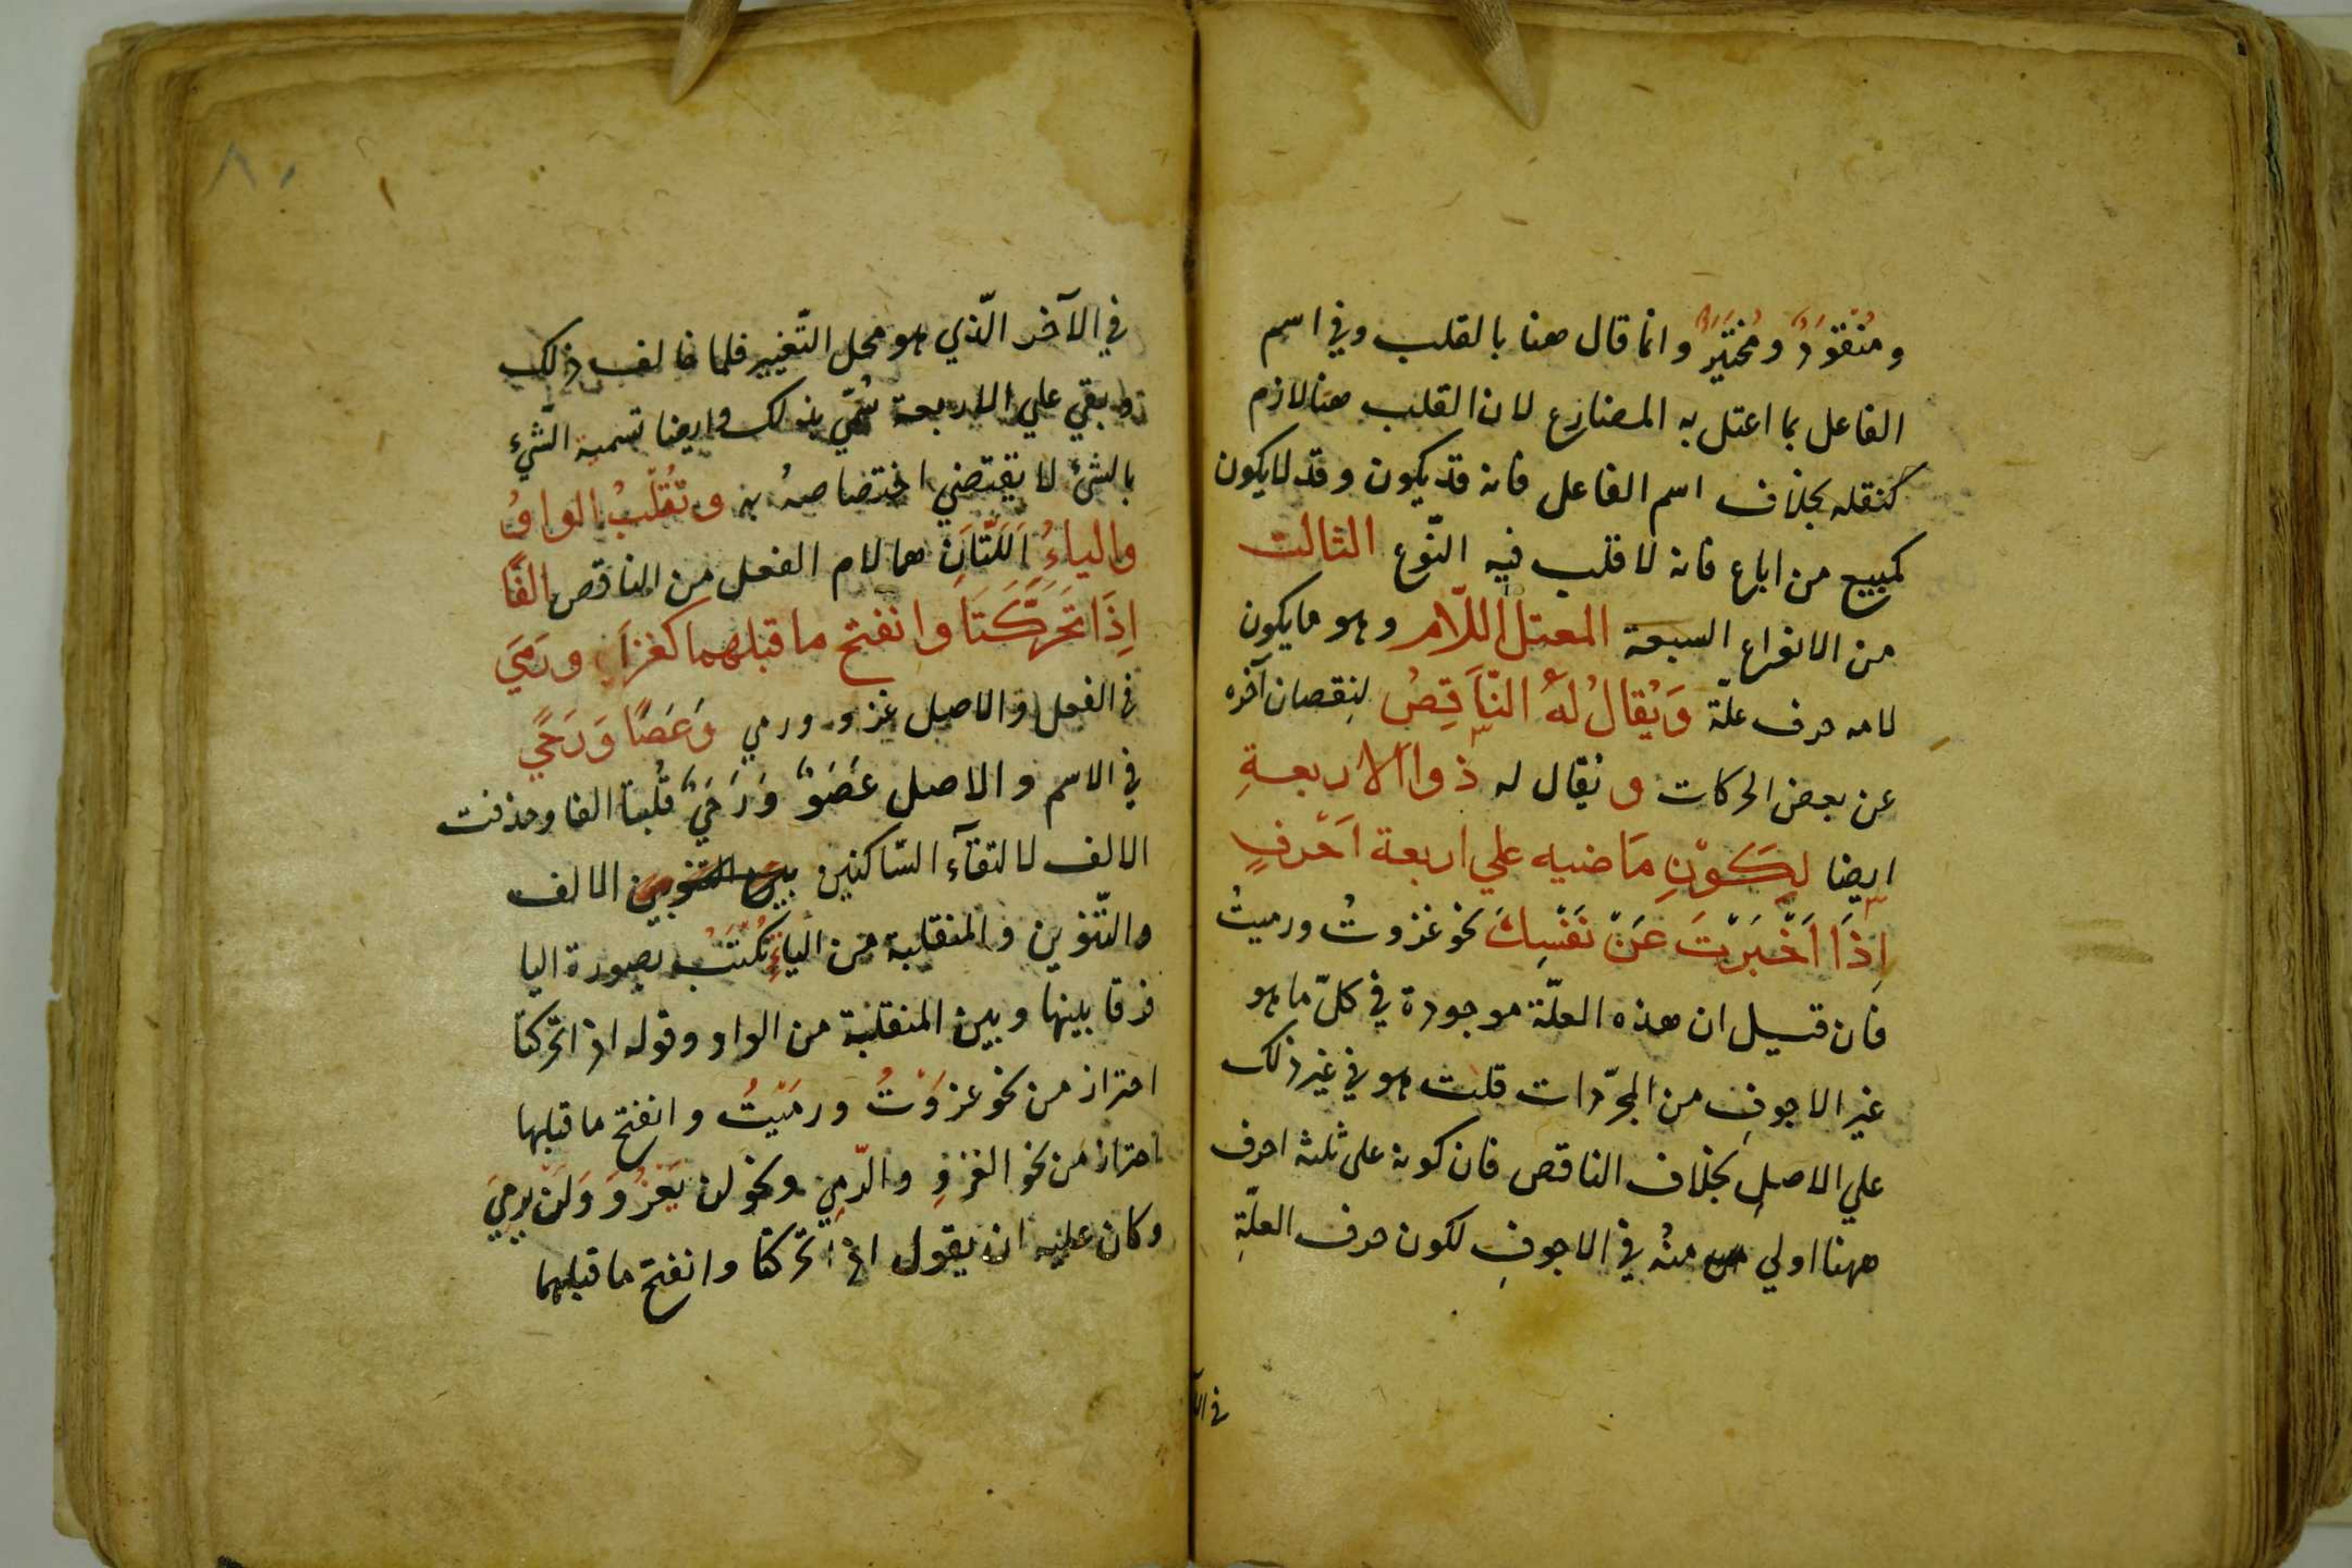 ومُنْقَوَدٌ ومُخْتَيَرٌ وانما قال هنا بالقلب وفي اسم
الفاعل بما اعتل به المضارع لان القلب هنا لازم
كنقله بخلاف اسم الفاعل فانه قد يكون وقد لا يكون
كمبيع من اباع فانه لا قلب فيه النّوع الثالث
من الانواع السبعة المعتل اللّام وهو ما يكون
لامه حرف علّة وَيُقالُ لَهُ النَّاقِصُ لنقصان آخره
عن بعض الحركات و يقال له ذوا الاربعةِ
ايضا لِكَوْنِ مَاضيه علي اربعة اَحْرفٍ
اِذَا اَخْبَرْتَ عَنْ نَفْسِكَ نحو غزوتُ ورميتُ
فان قيل ان هذه العلّة موجودة في كلّ ما هو
غير الاجوفِ من المجرّدات قلت هو في غير ذلك
علي الاصلِ بخلاف الناقص فان كونه على ثلثة احرف
ههنا اولي منهُ في الاجوفِ لكون حرف العلّةِ
في الآ
٨٠
في الآخر الّذي هو محل التّغيير فلما خالف ذلك
وبقي علي الاربعة سُمّي بذلك وايضا تسمية الشّيء
بالشئ لا يقتضي اختصاصهُ به وتُقلَبُ الواوُ
والياءُ اَللَّتَانِ هما لام الفعل من الناقص اَلفًا
اِذَا تَحَرَّكَتَا وانفتح ما قبلهما كغزَا ورَمَيَ
في الفعل والاصل غزو ورمي وَعَصًا وَرَحًي
في الاسم والاصل عَصَوٌ وَرَحَيٌ قُلبتا الفا وحذفت
الالف لالتقآء السّاكنين بين التنوين الالف
والتّنوين والمنقلبة من الياءِ تُكْتَبُ بصورة اليا
فرقا بينها وبين المنقلبة من الواو وقوله اذا تحركتا
احتراز من نحو غزَوْتُ ورمَيْتُ وانفتح ما قبلها
احتراز من نحو الغزْوِ والرّميِ ونحو لن يَغْزُوَ وَلَنْ يرمِيَ
وكان عليه ان يقول اذا تحركتا وانفتح ما قبلهما